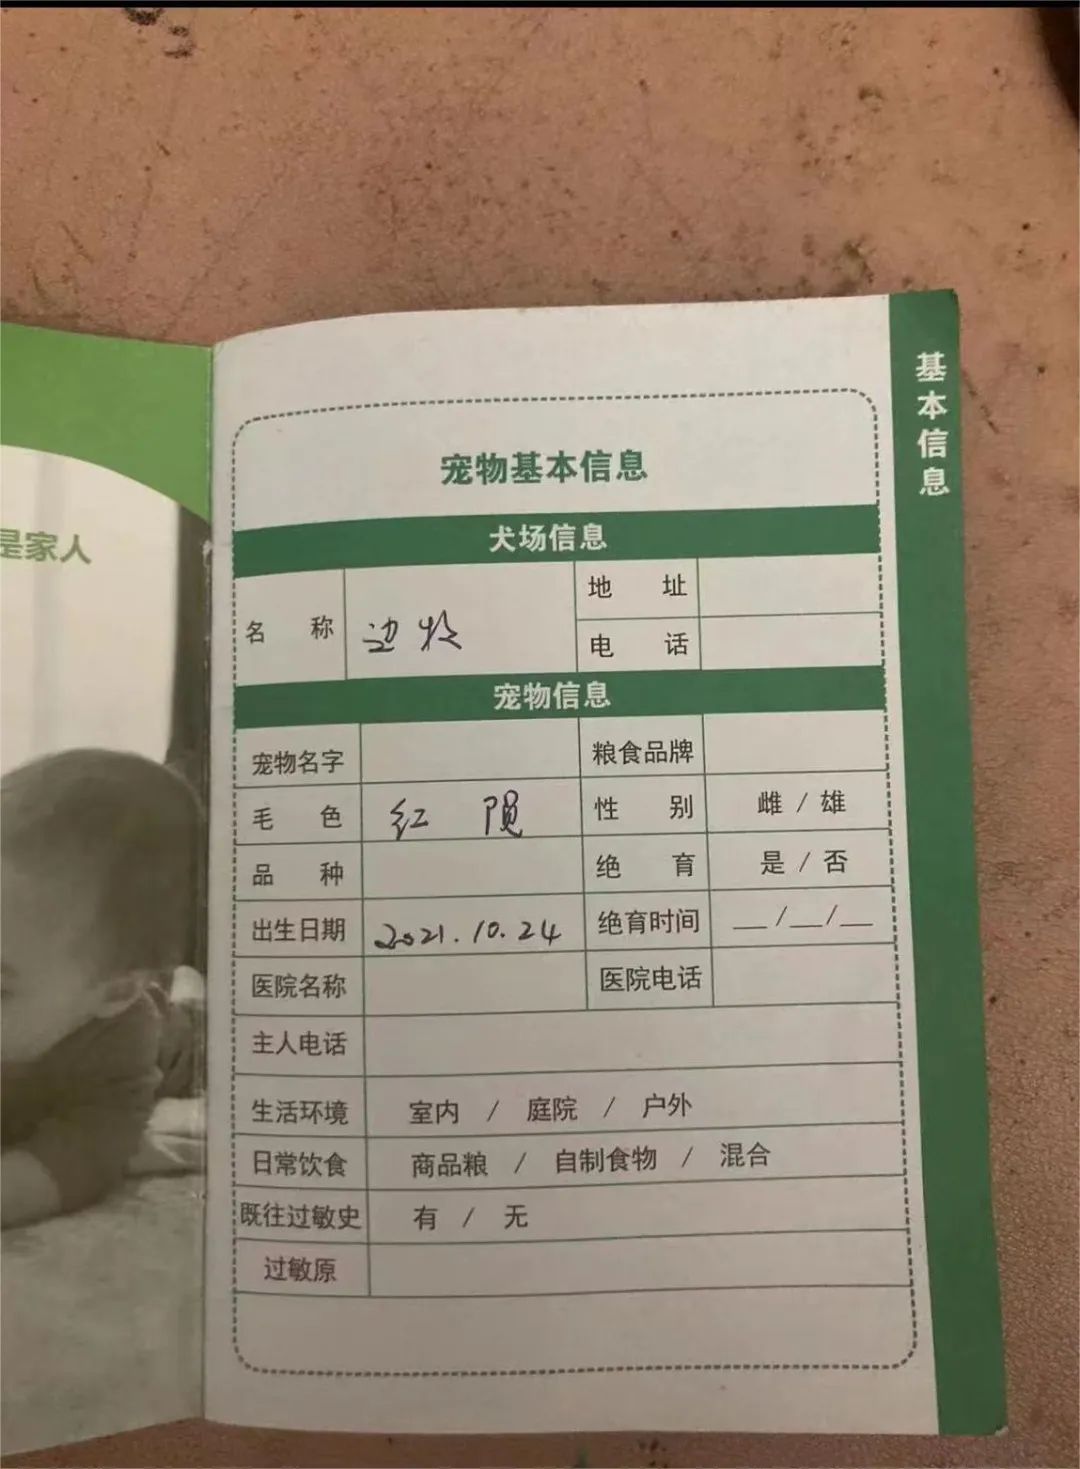 基本信息
是家人
宠物基本信息
犬场信息
名 称 边牧 地 址
电 话
宠物信息
宠物名字 粮食品牌
毛 色 红 陨 性 别 雌 / 雄
品 种 绝 育 是 / 否
出生日期 2021.10.24 绝育时间 __/__/__
医院名称 医院电话
主人电话
生活环境 室内 / 庭院 / 户外
日常饮食 商品粮 / 自制食物 / 混合
既往过敏史 有 / 无
过敏原